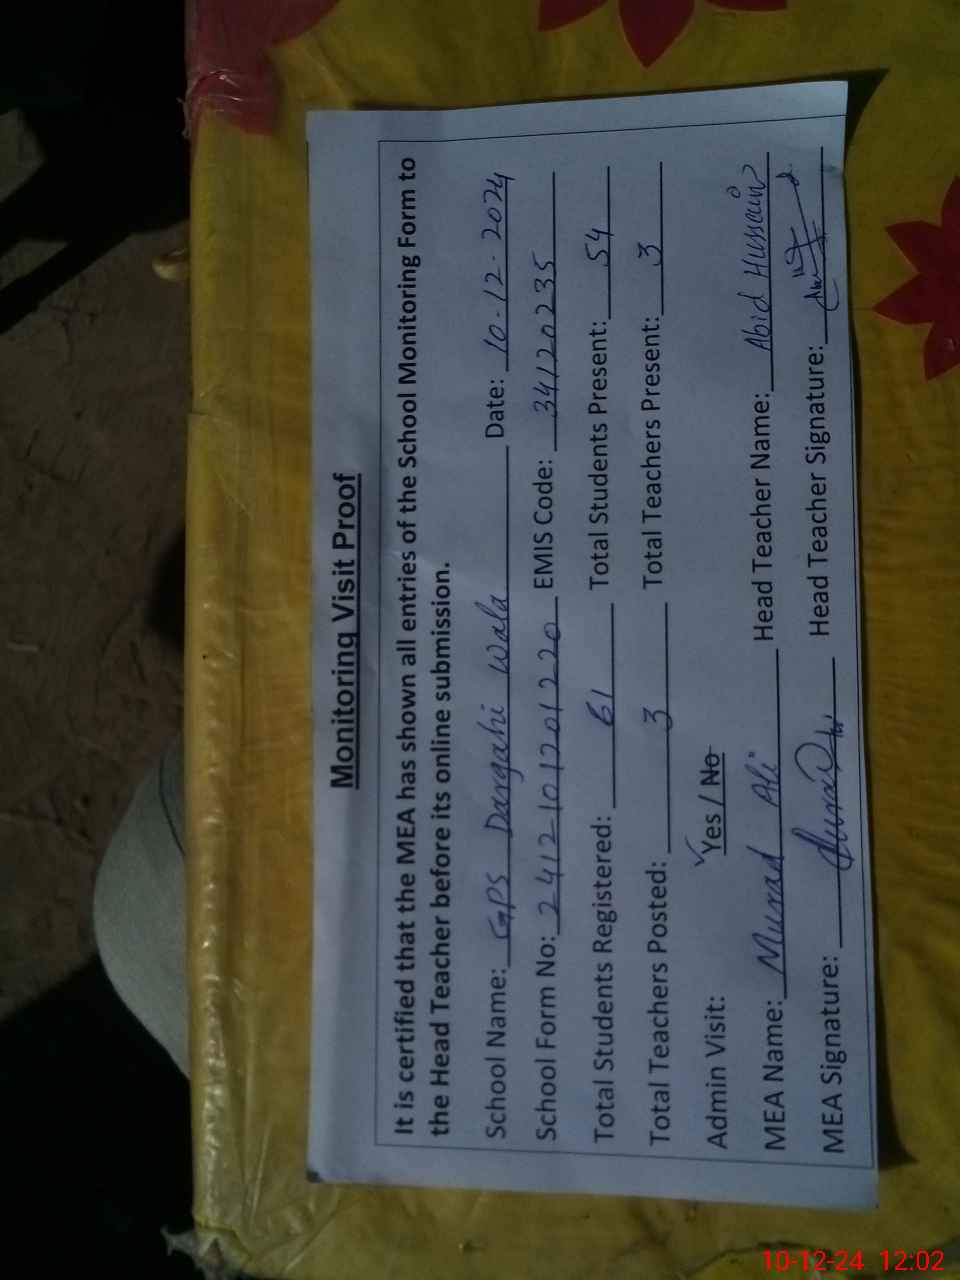 Monitoring Visit Proof
It is certified that the MEA has shown all entries of the School Monitoring Form to
the Head Teacher before its online submission.
School Name: GPS Dargahi Wala Date: 10-12-2024
School Form No: 2412101201220 EMIS Code: 34120235
Total Students Registered: 61 Total Students Present: 54
Total Teachers Posted: 3 Total Teachers Present: 3
Admin Visit: ✓Yes / No
MEA Name: Murad Ali Head Teacher Name: Abid Hussain
MEA Signature: Head Teacher Signature:
10-12-24 12:02